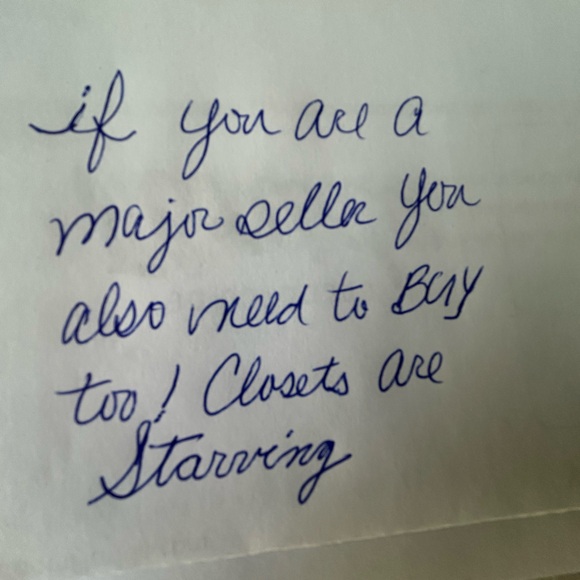 if you are a
major seller you
also need to Buy
too! Closets are
Starving